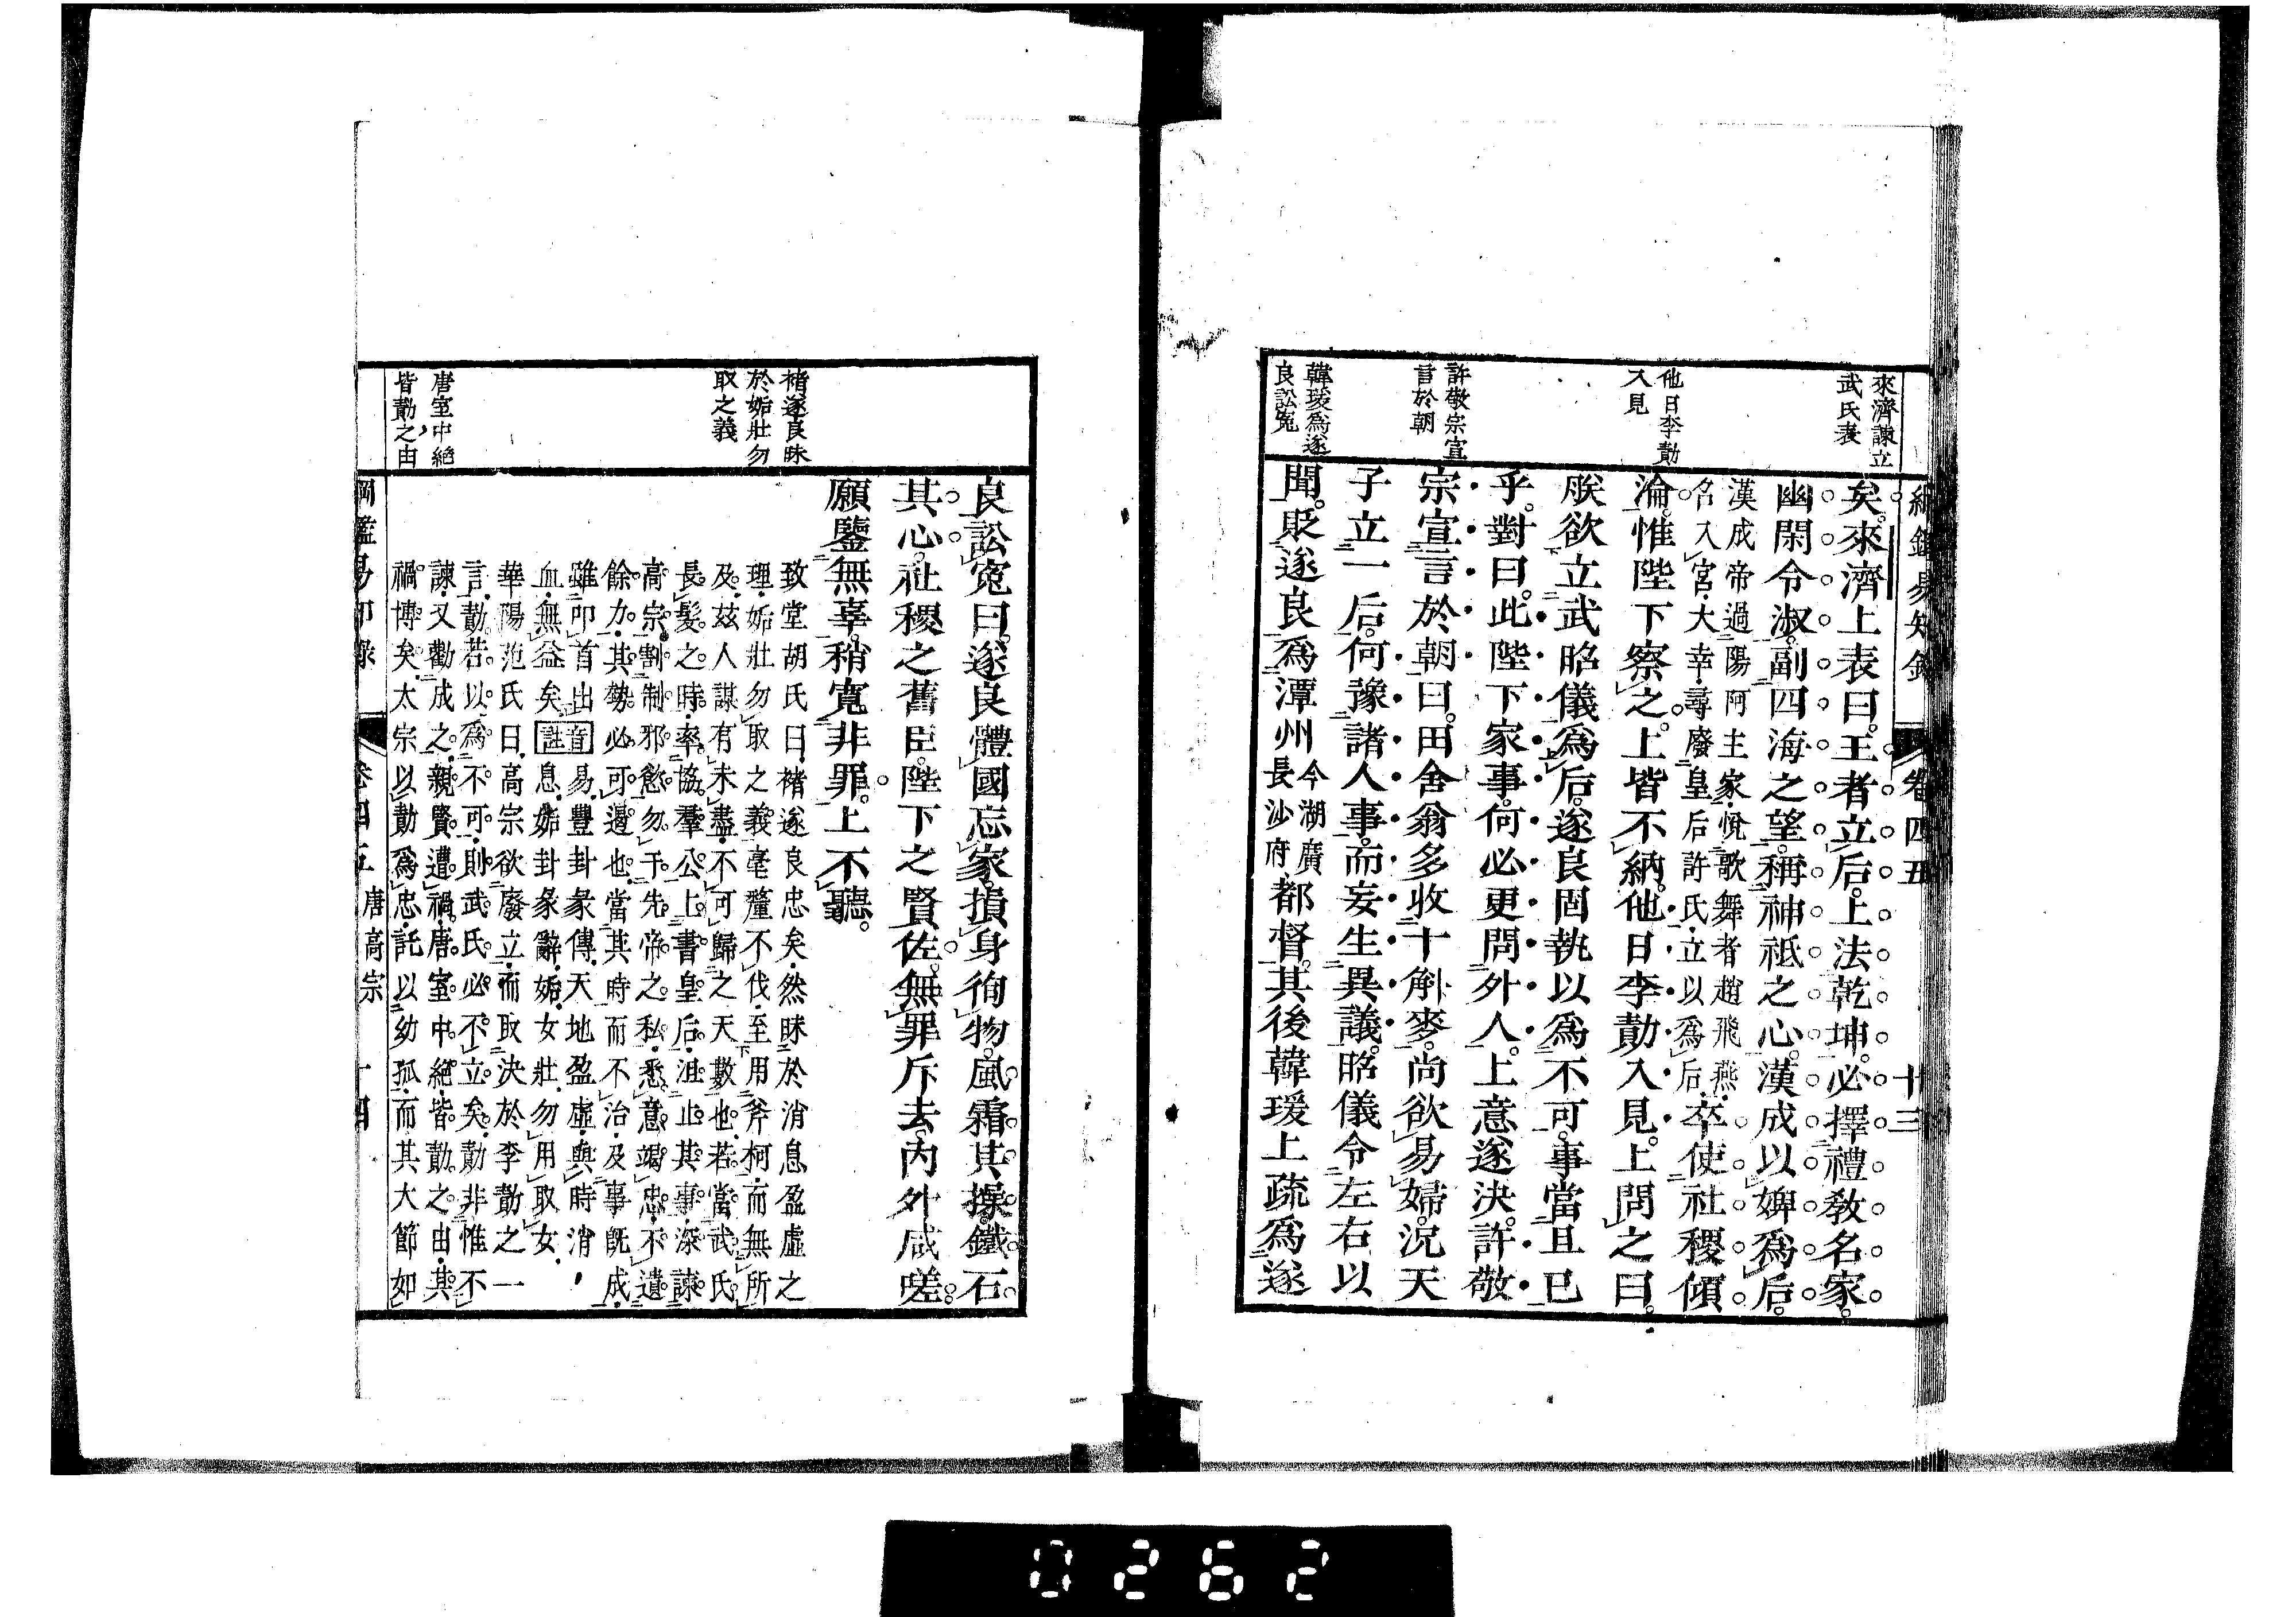 來濟諫立
武氏表
他日李勣
入見
許敬宗宣
言於朝
韓瑗爲遂
良訟冤
綱鑑易知錄 卷四五 十三
矣。來濟上表曰。王者立后。上法乾坤。必擇禮敎名家。
幽閑令淑。副四海之望。稱神祗之心。漢成以婢爲后。
漢成帝過陽阿主家。悅歌舞者趙飛燕。
名入宮。大幸。尋廢皇后許氏。立以爲后。
卒使社稷傾
淪。惟陛下察之。上皆不納。他日李勣入見。上問之曰。
朕欲立武昭儀爲后。遂良固執以爲不可。事當且已
乎。對曰。此陛下家事。何必更問外人。上意遂決。許敬
宗宣言於朝曰。田舍翁多收十斛麥。尚欲易婦。況天
子立一后。何豫諸人事。而妄生異議。昭儀令左右以
聞。貶遂良爲潭州
今湖廣
長沙府
都督。其後韓瑗上疏爲遂
良訟冤曰。遂良體國忘家。損身徇物。風霜其操。鐵石
其心。社稷之舊臣。陛下之賢佐。無罪斥去。內外咸嗟。
願鑒無辜。稍寬非罪。上不聽。
褚遂良昧
於姤壯勿
取之義
唐室中絕
皆勣之由
致堂胡氏曰。褚遂良忠矣。然昧於消息盈虛之
理。姤壯勿取之義。毫釐不伐。至用斧柯。而無所
及。茲人謀有未盡。不可歸之天數也。若當武氏
長髮之時。率協羣公。上書皇后。沮止其事。深諫
高宗。割制邪慾。勿于先帝之私。悉意竭忠。不遺
餘力。其勢必可遏也。當其時而不治。及事既成。
雖叩首出
血。無益矣。
音
註
易。豐卦彖傳。天地盈虛。與時消
息。姤卦彖辭。姤。女壯。勿用取女。
華陽范氏曰。高宗欲廢立。而取決於李勣之一
言。勣若以爲不可。則武氏必不立矣。勣非惟不
諫。又勸成之。親賢遭禍。唐室中絕。皆勣之由。其
禍博矣。太宗以勣爲忠。託以幼孤。而其大節如
綱鑑易知錄 卷四五 唐高宗 十四
0262